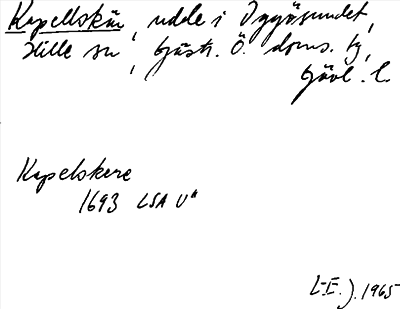 Kapellskär, udde i Iggösundet,
Hille sn, Gästr. Ö. doms. tg,
Gävl. l.
Kapelskere
1693 LSA U⁸
L-E. J. 1965